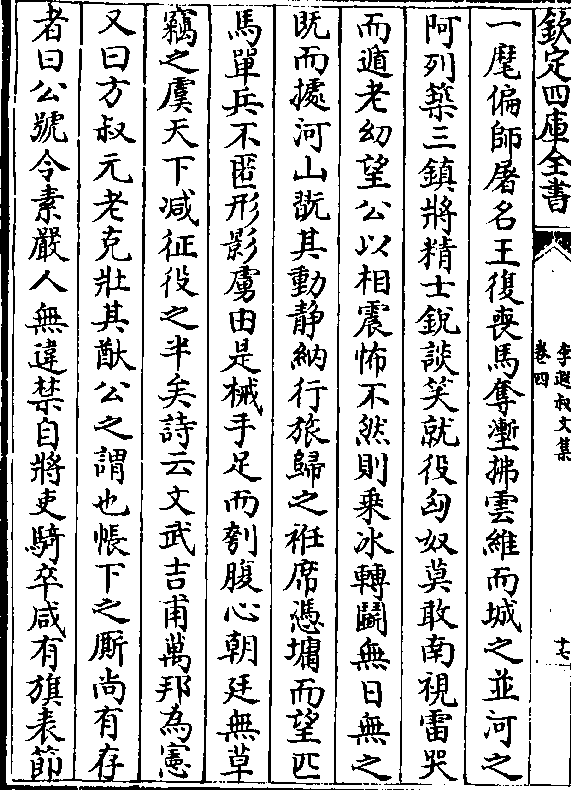 欽定四庫全書
李遐叔文集
卷四
十七
一麾偏師屠名王復喪馬奪漸拂雲維而城之並河之
阿列築三鎮將精士銳談笑就役匈奴莫敢南視雷哭
而遁老幼望公以相震怖不然則乗冰轉鬭無日無之
既而據河山翫其動静納行旅歸之袵席憑墉而望匹
馬單兵不匿形影虜由是械手足而刳腹心朝廷無草
竊之虞天下减征役之半矣詩云文武吉甫萬邦為憲
又曰方叔元老克壯其猷公之謂也帳下之厮尚有存
者曰公號令素嚴人無違禁自將吏騎卒咸有旗表節